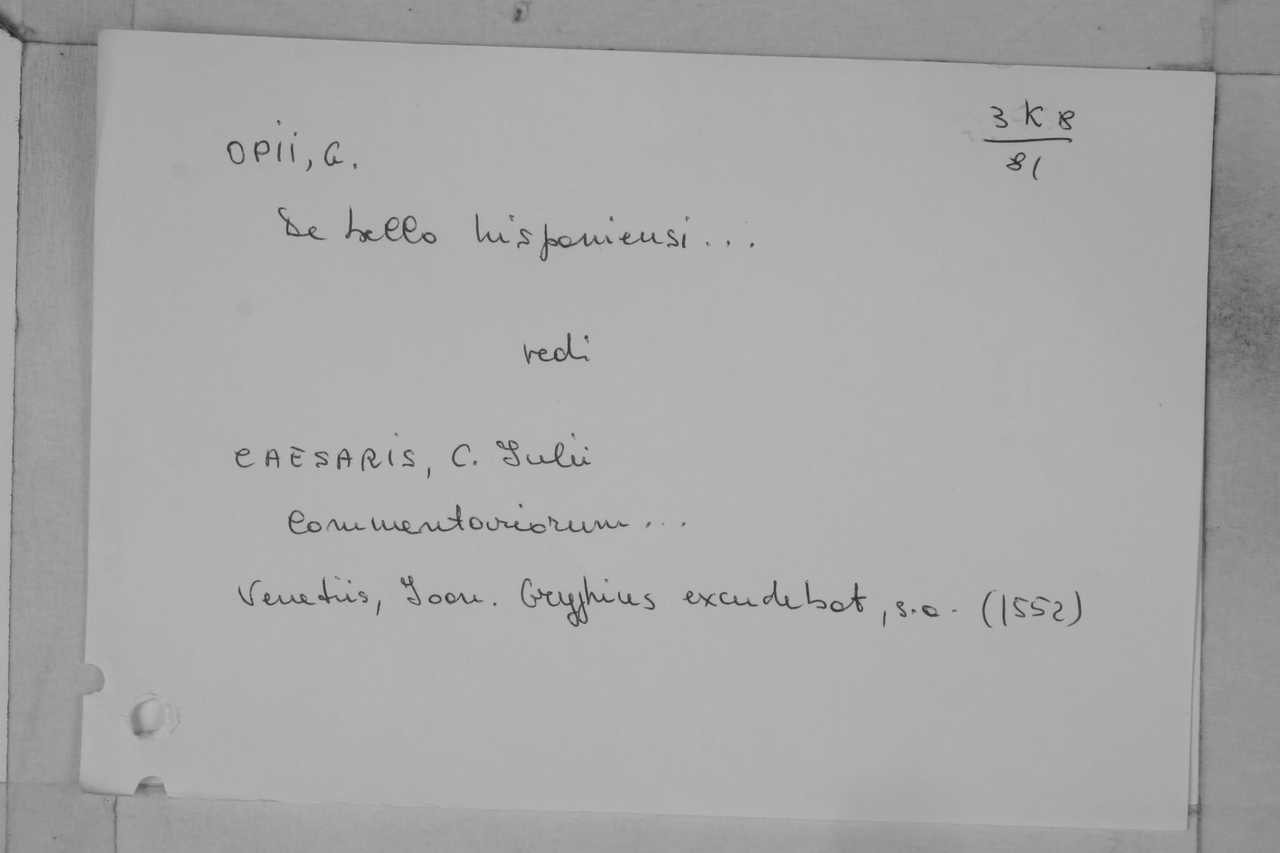 3 K 8
81
OPII, G.
De bello hisponiensi...
vedi
CAESARIS, C. Julii
Commentariorum...
Venetiis, Joan. Gryphius excudebat, s.a. (1552)